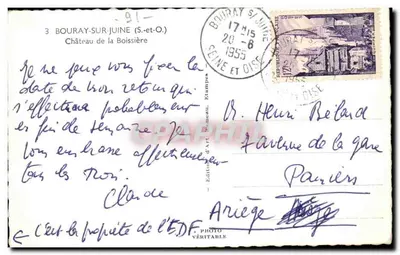 -91-
3 BOURAY-SUR-JUINE (S.-et-O.)
Château de la Boissière
Je ne peux vous fixer la
date de mon retour qui
s'effectuera probablement
en fin de semaine. Je
vous embrasse affectueusement
tous les trois.
Claude
(C'est la propriété de l'EDF
BOURAY S/JUINE
17H15
20-6
1955
SEINE ET OISE
M. Henri Bélard
7 avenue de la gare
Pamiers
Ariège
PHOTO
VÉRITABLE